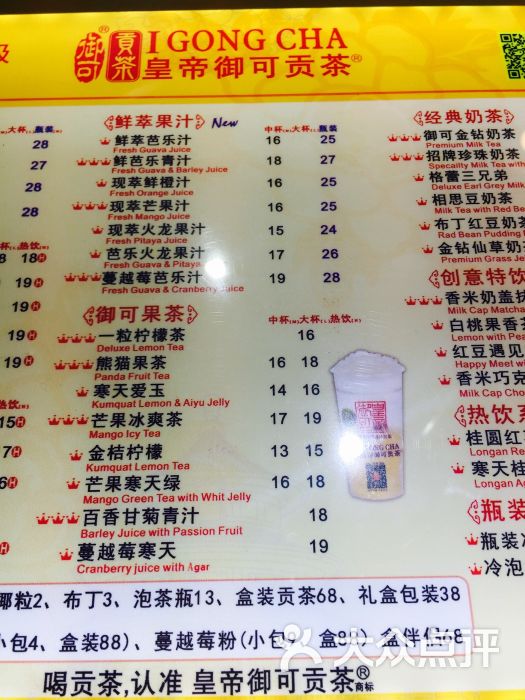 级
御可
贡茶
I GONG CHA
皇帝御可贡茶®
大杯(L) 瓶装(M)
28
27
28
杯(L) 热饮(H)
8 18H
19H
19H
19H
热饮(H)
15H
17H
6H
鲜萃果汁 New
中杯(M) 大杯(L) 瓶装
鲜萃芭乐汁 16 25
Fresh Guava Juice
鲜芭乐青汁 18 27
Fresh Guava & Barley Juice
现萃鲜橙汁 16 25
Fresh Orange Juice
现萃芒果汁 16 25
Fresh Mango Juice
现萃火龙果汁 15 24
Fresh Pitaya Juice
芭乐火龙果汁 17 26
Fresh Guava & Pitaya
蔓越莓芭乐汁 19 28
Fresh Guava & Cranberry Juice
御可果茶
中杯(M) 大杯(L) 热饮(H)
一粒柠檬茶 16
Deluxe Lemon Tea
熊猫果茶 16 18
Panda Fruit Tea
寒天爱玉 14 16
Kumquat Lemon & Aiyu Jelly
芒果冰爽茶 17 19
Mango Icy Tea
金桔柠檬 13 15
Kumquat Lemon Tea
芒果寒天绿 16 18
Mango Green Tea with Whit Jelly
百香甘菊青汁 18
Barley Juice with Passion Fruit
蔓越莓寒天 19
Cranberry juice with Agar
经典奶茶
御可金钻奶茶
Premium Milk Tea
招牌珍珠奶茶
Speciality Milk Tea with
格蕾三兄弟
Deluxe Earl Grey Milk
相思豆奶茶
Milk Tea with Red Bean
布丁红豆奶茶
Rad Bean Pudding
金钻仙草奶
Premium Grass Je
创意特饮
香米奶盖抹
Milk Cap Matcha
白桃果香茶
Lemon with Pea
红豆遇见
Happy Meet w
香米巧克
Milk Cap Choc
热饮系
桂圆红
Longan Re
寒天桂
Longan Ag
瓶装
瓶装
冷泡
GONG CHA
椰粒2、布丁3、泡茶瓶13、盒装贡茶68、礼盒包装38
小包4、盒装88）、蔓越莓粉(小包 盒 盒伴侣68
大众点评
喝贡茶,认准 皇帝御可贡茶®商标